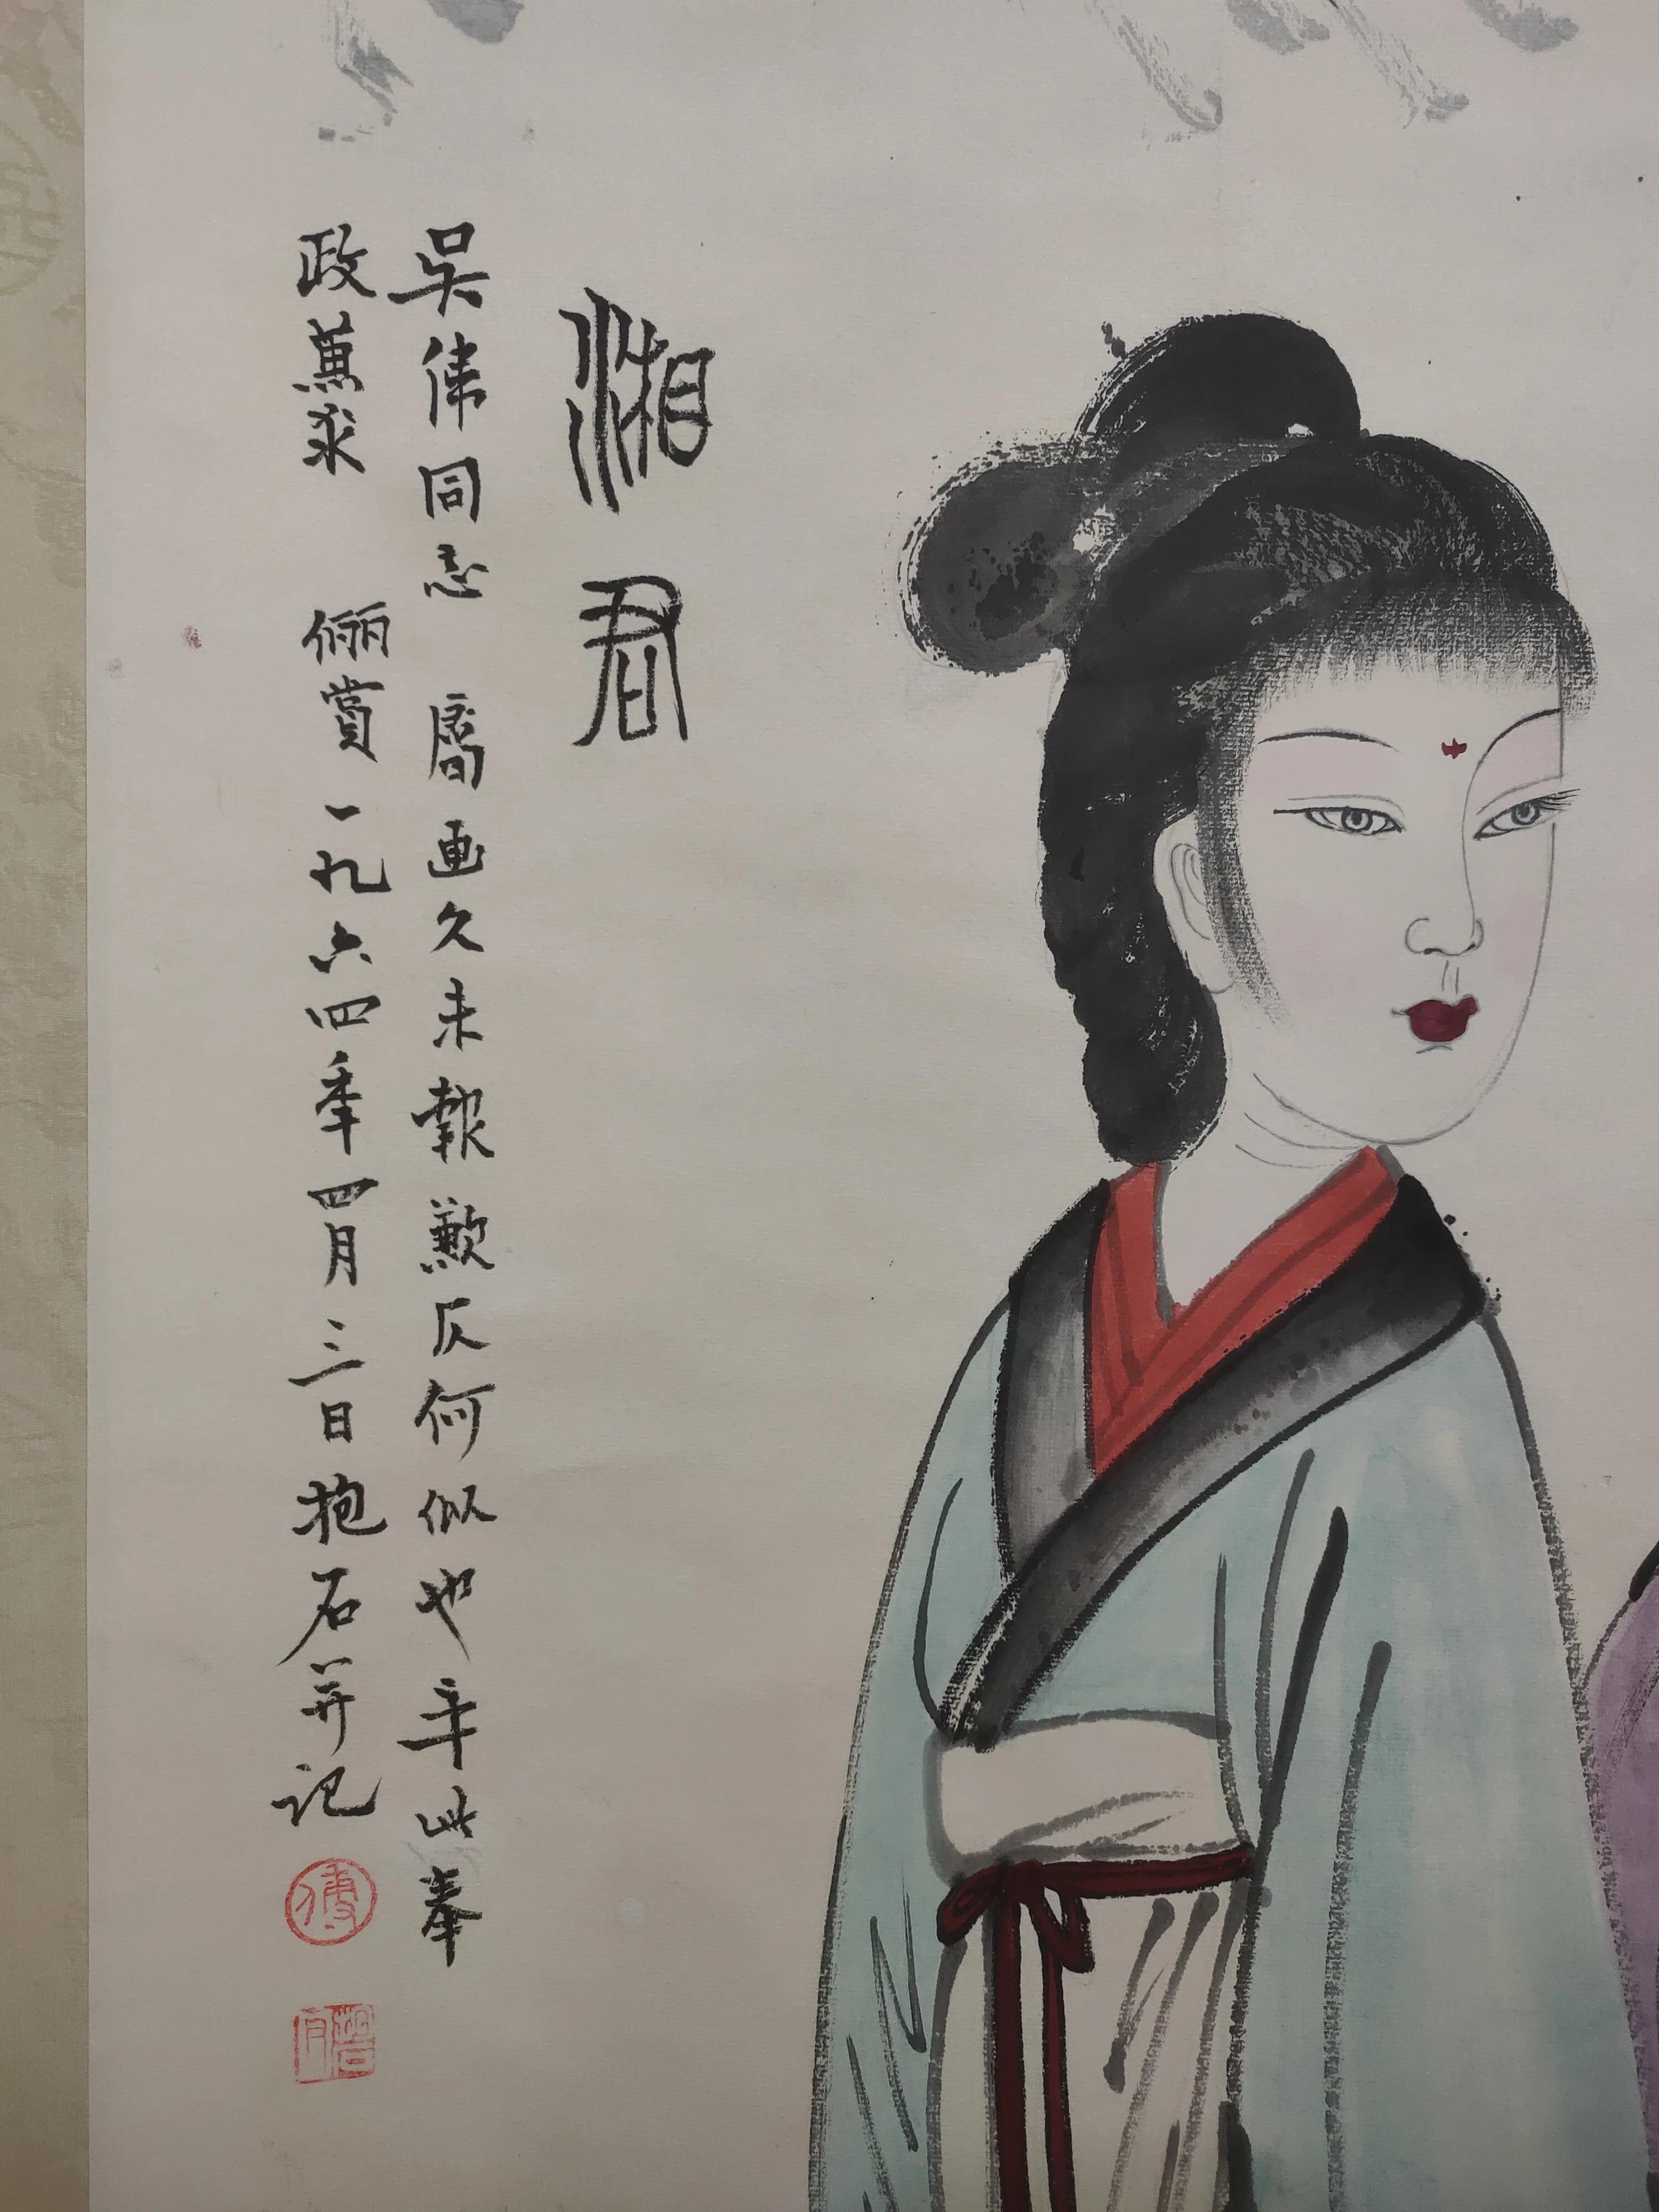 湘君
吴偉同志 屬画久未報歉仄何似也 年此奉
政蕙求 俪賞 一九六四季四月三日抱石并记
傅